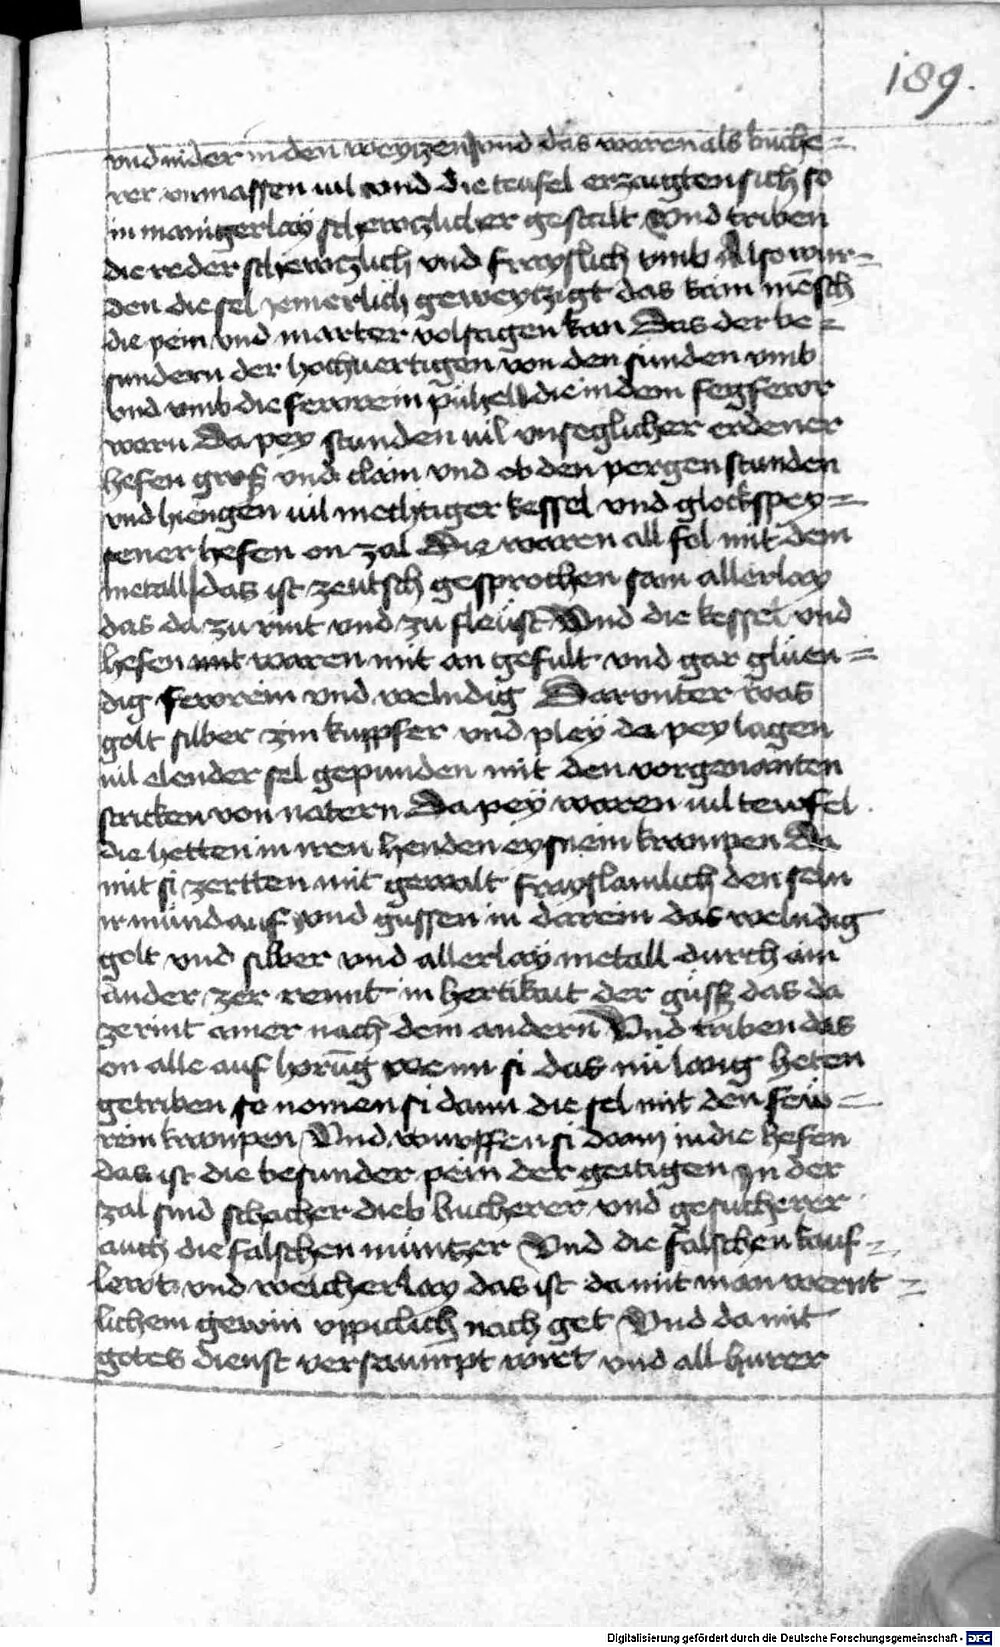 189.
vnd nider in den weytzen vnd das waren als buche=
rer vnmassen uil vnd die teufel erzaigten sich so
in manigerlay schewczlicher gestalt Vnd triben
die reder schewczlich vnd frayslich vmb Also wur=
den die sel iemerlich geweytzigt das kain mēsch
die pein vnd marter volsagen kan Das der be=
sundern der hochuertigen von den sunden vmb
vnd vmb die fewrein puhell die in dem fegfewr
warn Da pey stunden uil vnseglicher erdener
hefen gross vnd clain vnd ob den pergen stunden
vnd hiengen uil mechtiger kessel vnd glockspey=
sener hefen on zal Die waren all fol mit dem
metall das ist zeutsch gesprochen sam allerlay
das da zu rint vnd zu fleüst Vnd die kessel vnd
hefen mit waren mit an gefult vnd gar glüen=
dig fewrein vnd welndig Darunter was
golt silber zin kupfer vnd pley da pey lagen
uil elender sel gepunden mit den vorgenanten
stricken von natern Da pey waren uil tewfel
die hetten in iren henden eysnein krampen Da
mit si zertten mit gewalt frayslamlich den seln
ir münd auf vnd gussen in darein das welndig
golt vnd silber vnd allerlay metall durch ain
ander zer rennt in hertikait der güss das da
zerint ainer nach dem andern Vnd triben das
on alle auf horūg wenn si das nü lang heten
getriben so nomen si dann die sel mit den few=
rein krampen Vnd wurffen si dann in die hefen
das ist die besunder pein der geitigen In der
zal sind schacher dieb bucherer vnd gesucherer
auch die falschen müntzer Vnd die falschen kauf=
lewt vnd welcherlay das ist da mit man wernt=
lichem gewin vppiclich nach get Vnd da mit
gotes dienst versaumpt wirt vnd all hurer
Digitalisierung gefördert durch die Deutsche Forschungsgemeinschaft - DFG